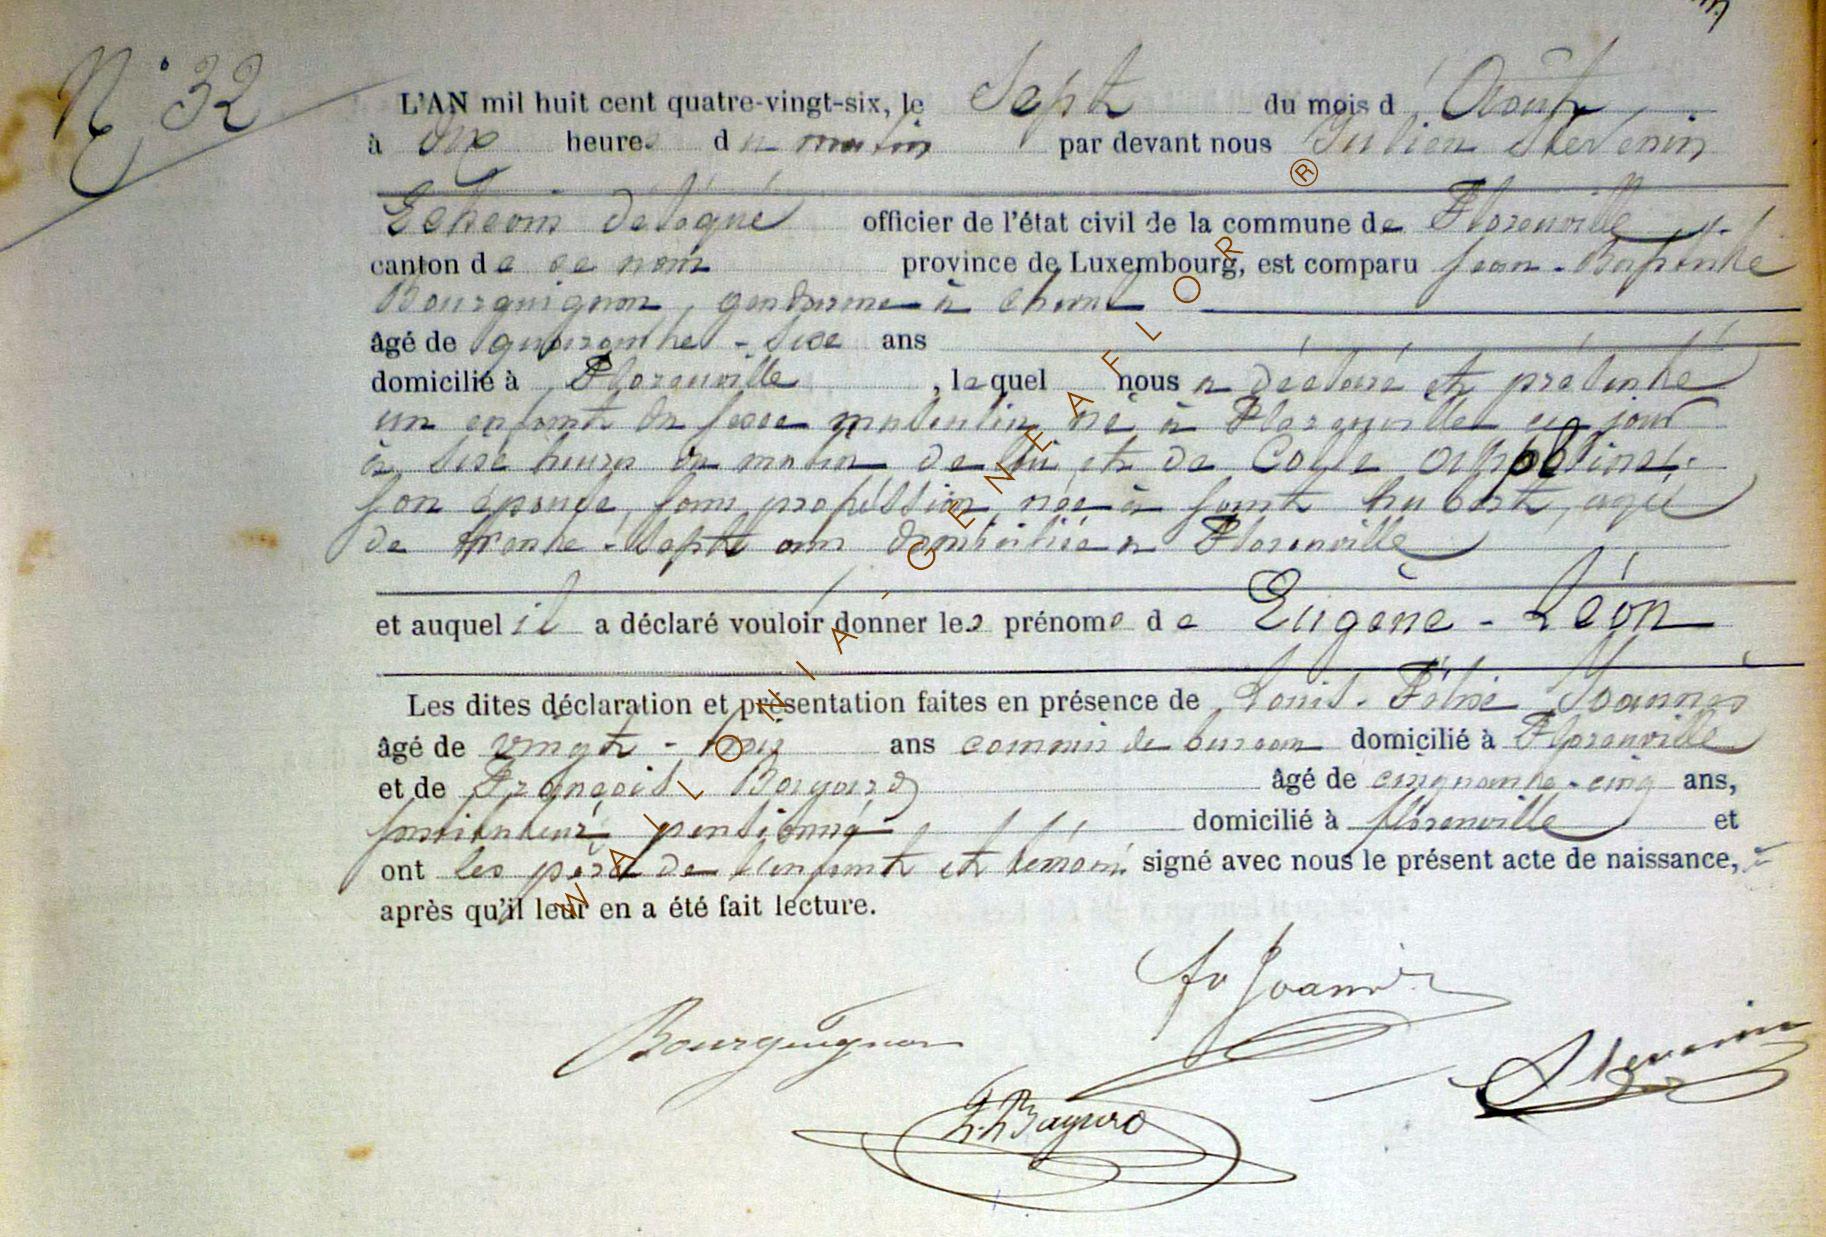 N° 32
L'AN mil huit cent quatre-vingt-six, le Sept du mois d'Août
à dix heures du matin par devant nous Julien Stevenin
Echevin délégué officier de l'état civil de la commune de Florenville
canton de ce nom province de Luxembourg, est comparu Jean-Baptiste
Bourguignon, gendarme à cheval
âgé de quarante-six ans
domicilié à Florenville, lequel nous a déclaré et présenté
un enfant du sexe masculin né à Florenville ce jour
à six heures du matin de lui et de Colle Appoline
son épouse, sans profession née à saint hubert, agée
de trente-sept ans domiciliée à Florenville
et auquel il a déclaré vouloir donner les prénoms de Eugène-Léon
Les dites déclaration et présentation faites en présence de Louis-Félix Joannes
âgé de vingt-trois ans commis de bureau domicilié à Florenville
et de François Bayard âgé de cinquante-cinq ans,
pensionné domicilié à florenville et
ont les père de l'enfant et témoins signé avec nous le présent acte de naissance,
après qu'il leur en a été fait lecture.
Joannes
Bourguignon
Stevenin
F. Bayard
WALLONIA - GENEAFLOR ®